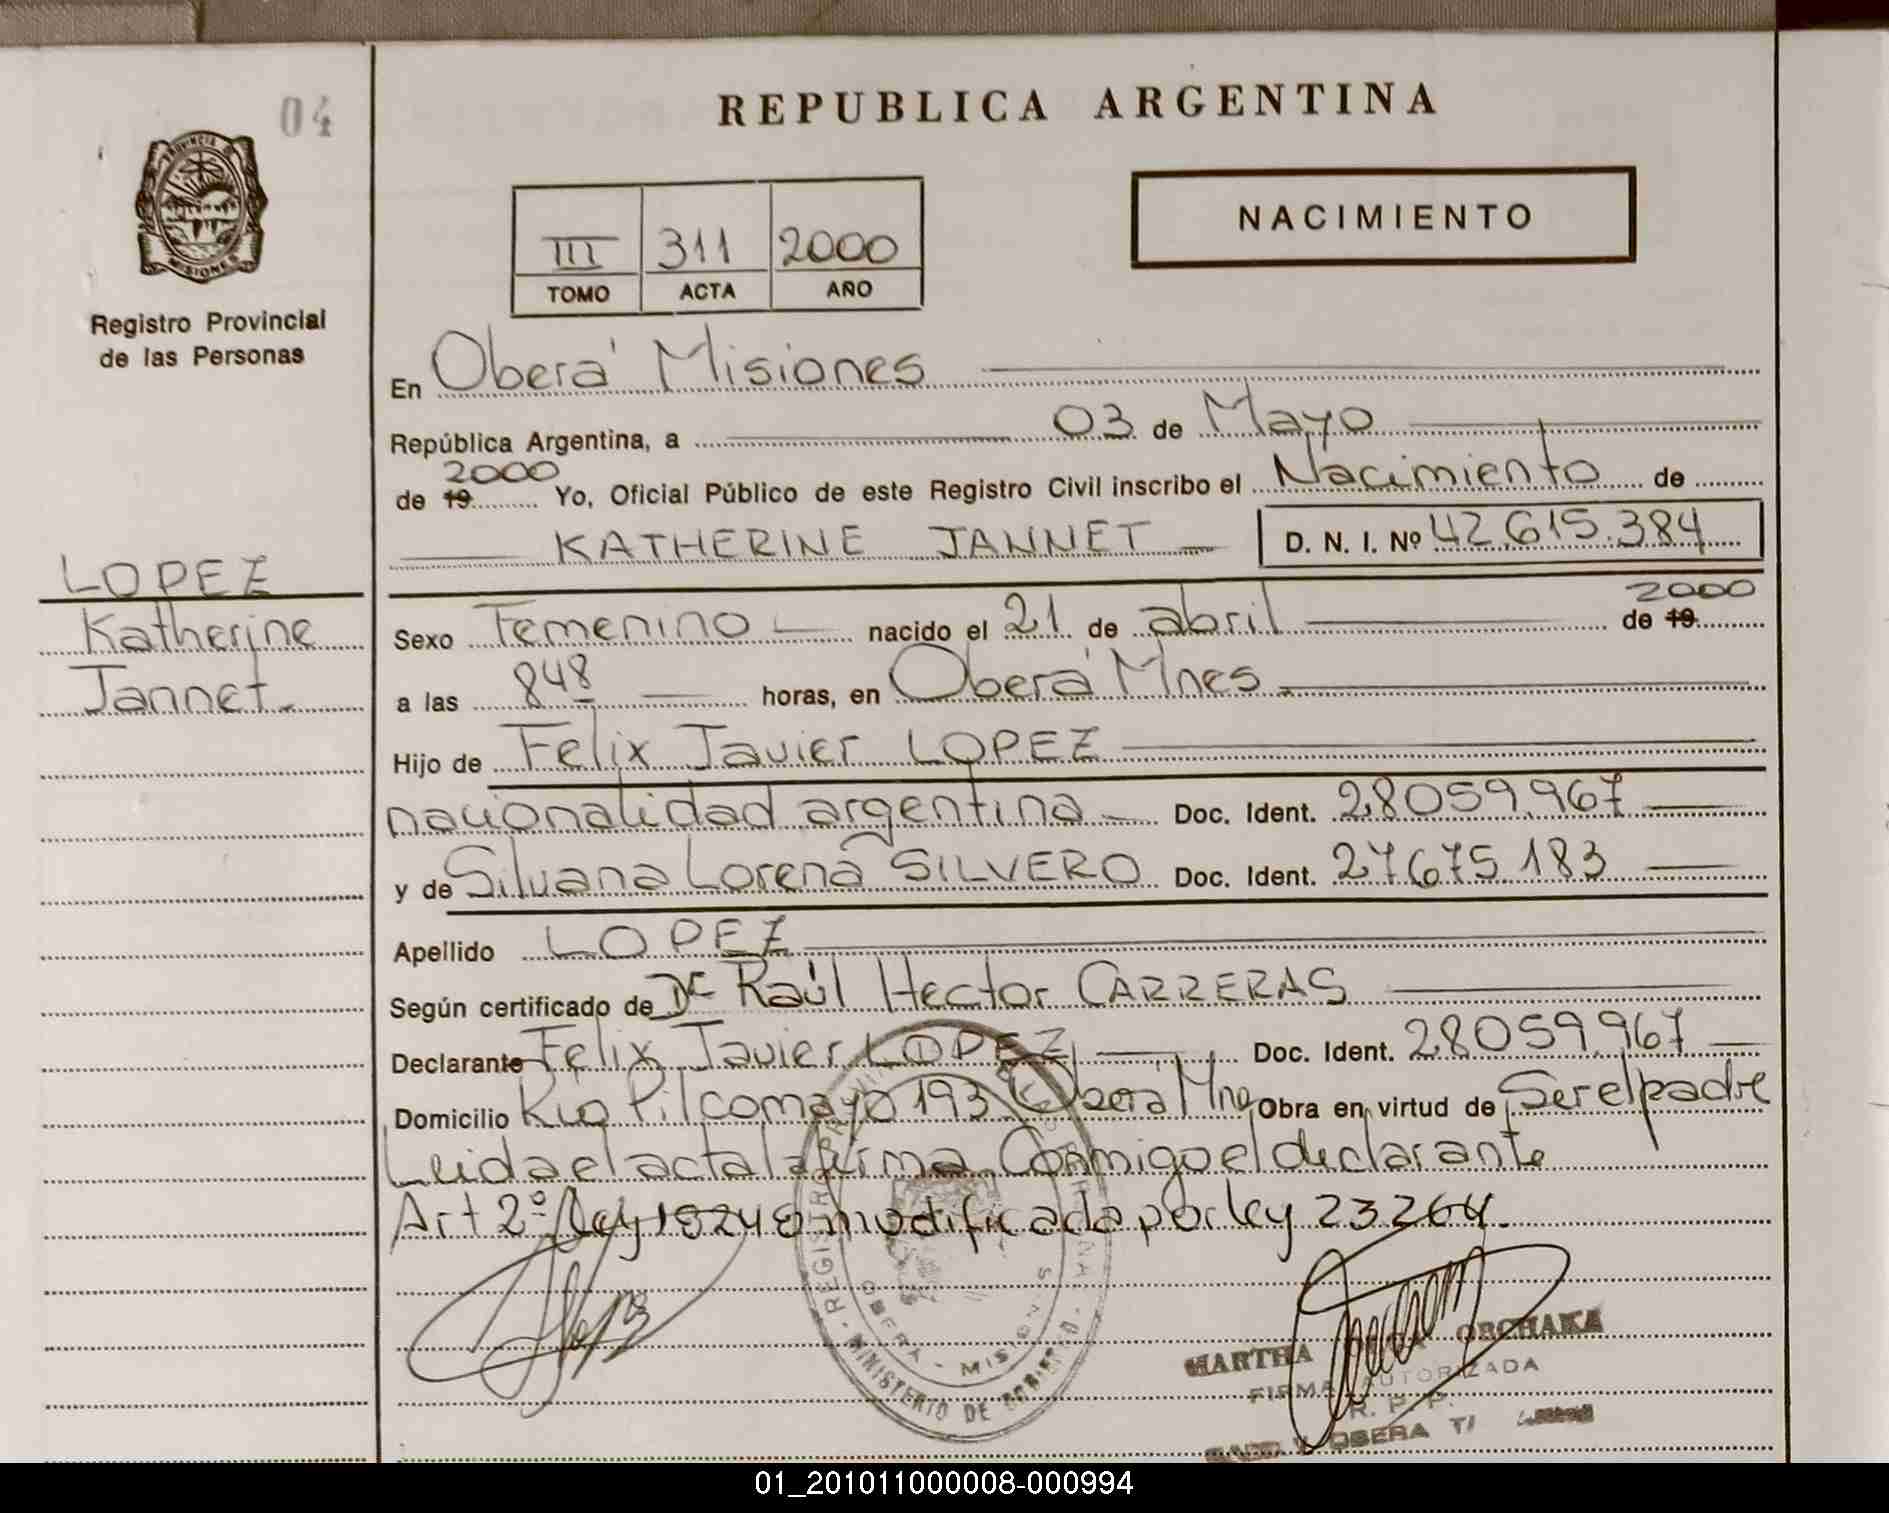 04
REPUBLICA ARGENTINA
PROVINCIA DE
MISIONES
Registro Provincial
de las Personas
III 311 2000
TOMO ACTA AÑO
NACIMIENTO
En Oberá Misiones
República Argentina, a 03 de Mayo
2000
de 19 Yo, Oficial Público de este Registro Civil inscribo el Nacimiento de
KATHERINE JANNET D. N. I. Nº 42.615.384
LOPEZ
Katherine
Jannet.
2000
Sexo Femenino nacido el 21 de abril de 19
a las 848 horas, en Oberá Mnes.
Hijo de Felix Javier LOPEZ
nacionalidad argentina Doc. Ident. 28059.967
y de Silvana Lorena SILVERO Doc. Ident. 27675.183
Apellido LOPEZ
Según certificado de Dr Raúl Hector CARRERAS
Declarante Felix Javier LOPEZ Doc. Ident. 28059.967
Domicilio Rio Pilcomayo 193 Oberá Mnes Obra en virtud de Ser el padre
Leida el acta la firma Conmigo el declarante
Art 2º Ley 18248 modificada por ley 23264.
OBERA - MISIONES
MINISTERIO DE GOBIERNO
MARTHA ORCHAKA
FIRMA AUTORIZADA
R. P. P.
OBERA
01_201011000008-000994